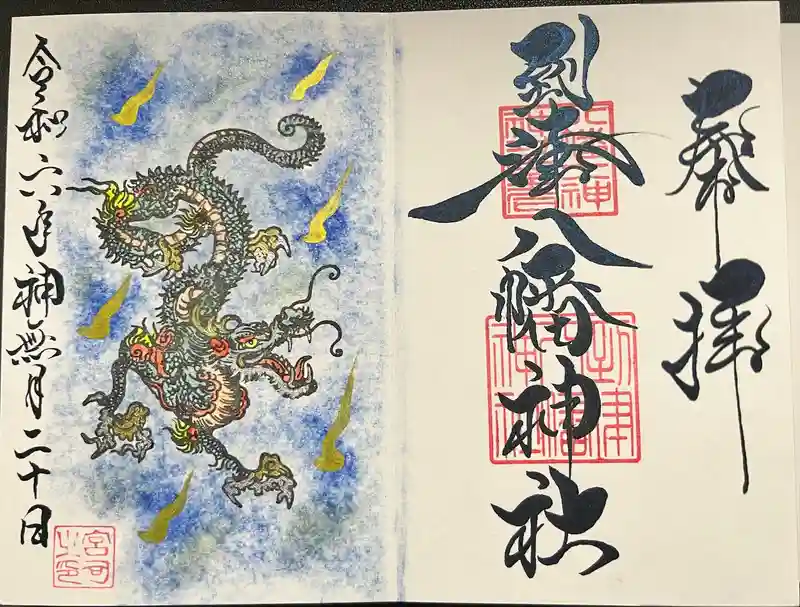 奉拝
到津八幡神社
令和六年神無月二十日
宮司之印